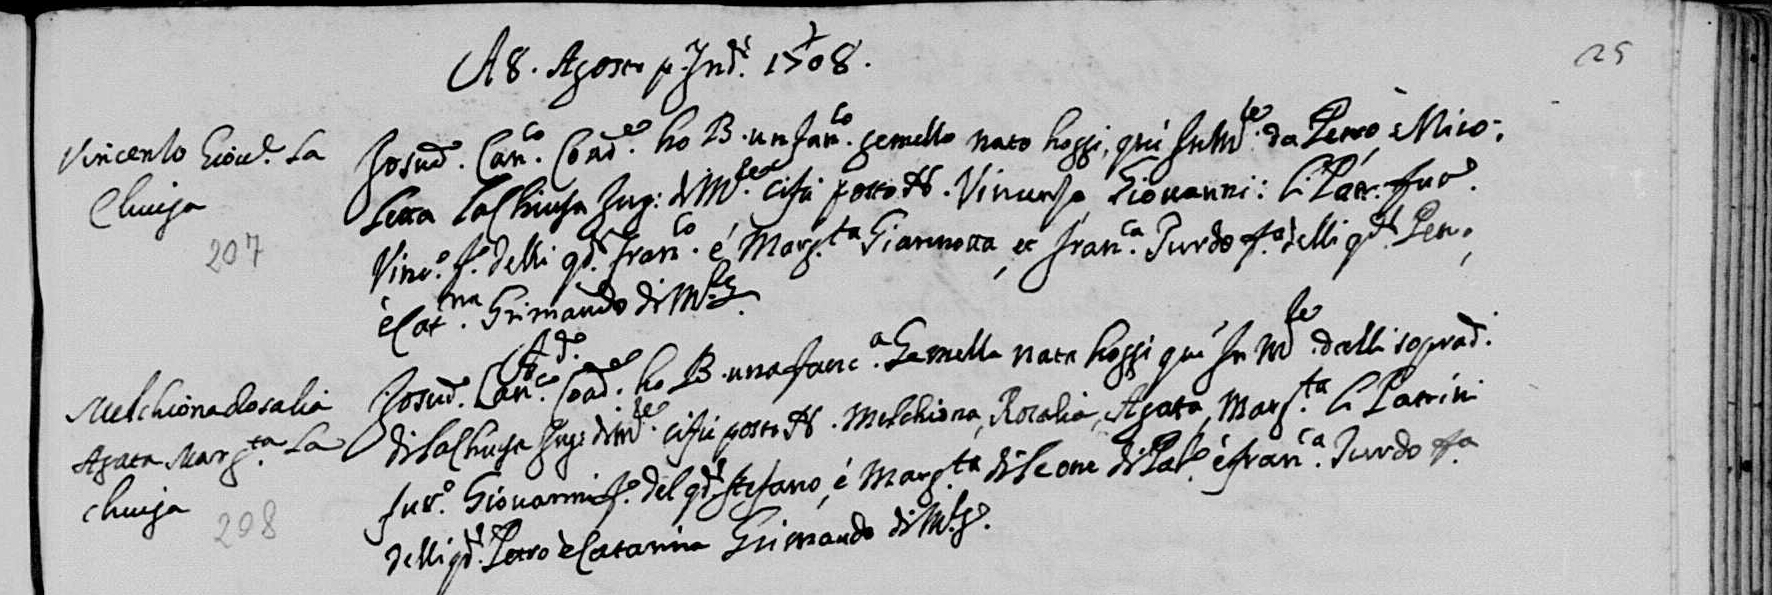 A 8. Agosto p.ª Ind.e 1708.
25
Vincenzo Giov.i La
Chiusa
207
Io sud.o Can.co Coad.e ho B. un fan.lo gemello nato hoggi, quì In M.le da Pietro, è Nico-
letta La Chiusa Jug: di M.le ci fù posto No. Vincenzo Giovanni: li Patr: fur.o
Vinc.o f.o delli qd. Fran.co é Marg.ta Giannotta, et Fran.ca Turdo f.a delli qd. Petro,
è Cat.na Grimaudo di M.le
A d.o
Melchiona Rosalia
Agata Marg.ta La
Chiusa
208
Io sud.o Can.co Coad.e ho B. una fanc.a Gemella nata hoggi quì In M.le dalli soprad.i
di La Chiusa Jug: di M.le ci fù posto No. Melchiona, Rosalia, Agata, Marg.ta li Patrini
fur.o Giovanni f.o del qd. Stefano, é Marg.ta di Leone di Pal.o è Fran.ca Turdo f.a
delli qd. Petro è Catarina Grimaudo di M.le